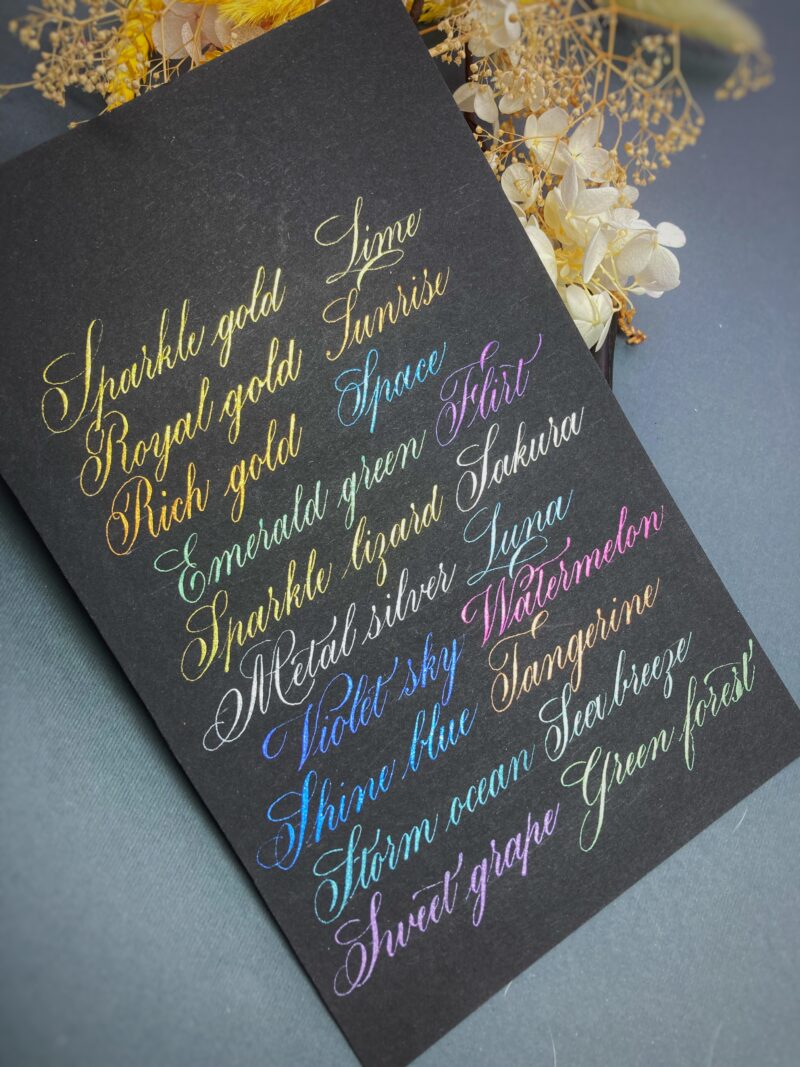 Sparkle gold Lime
Royal gold Sunrise
Rich gold Space
Emerald green Flirt
Sparkle lizard Sakura
Metal silver Luna
Violet sky Watermelon
Shine blue Tangerine
Storm ocean Sea breeze
Sweet grape Green forest